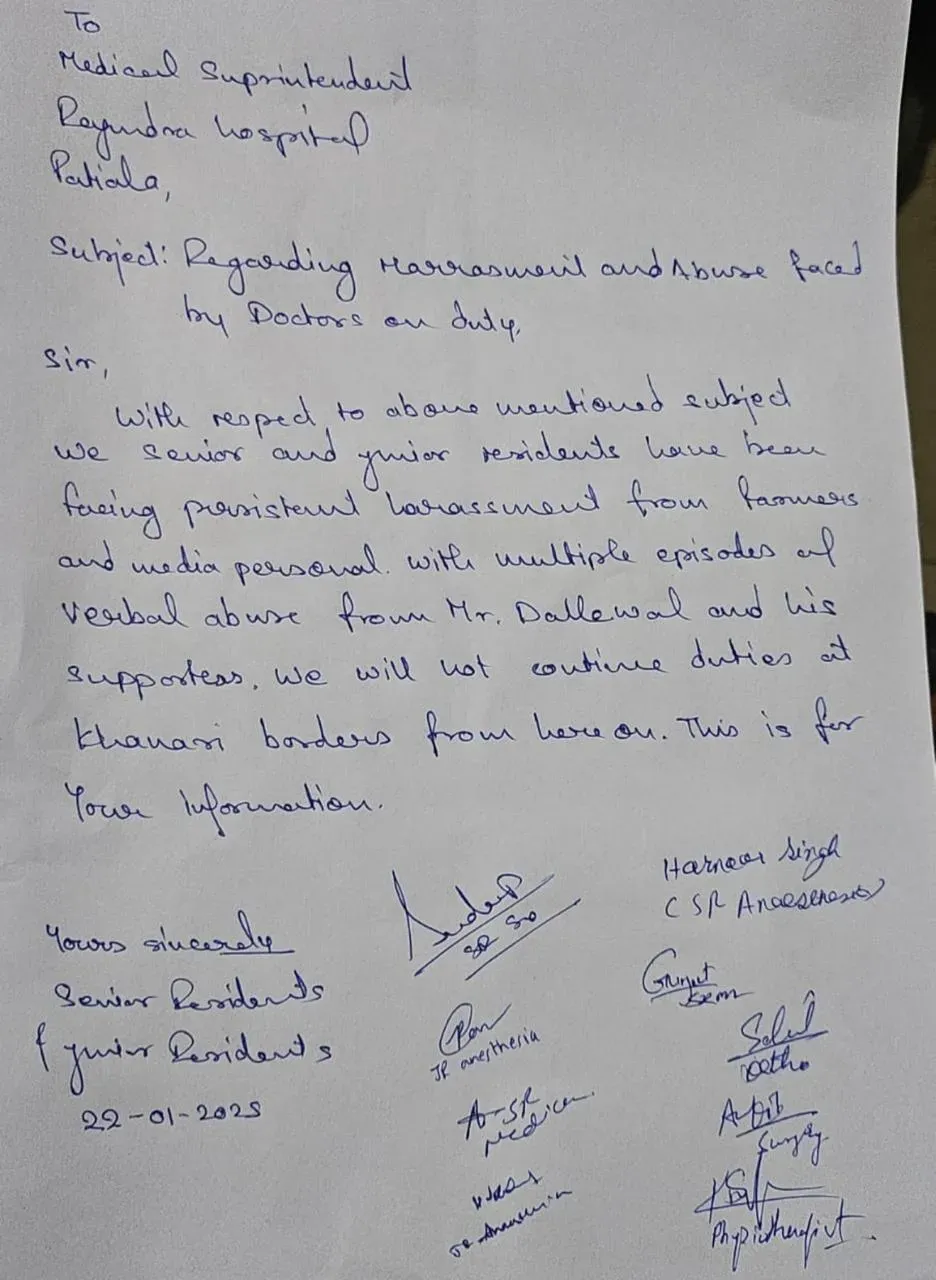 To
Medical Suprintendent
Rajindra hospital
Patiala,
Subject: Regarding Harrasment and Abuse faced
by Doctors on duty.
Sir,
With respect to above mentioned subject
we senior and junior residents have been
facing persistent harassment from farmers
and media personal. with multiple episodes of
verbal abuse from Mr. Dallewal and his
supporters. We will not continue duties at
Khanari borders from here on. This is for
Your Information.
Yours sincerely
Senior Residents
& Junior Residents
22-01-2025
Singh
(SR
JR anesthesia
A-SR
Medicine
Surgery
Physiotherapist